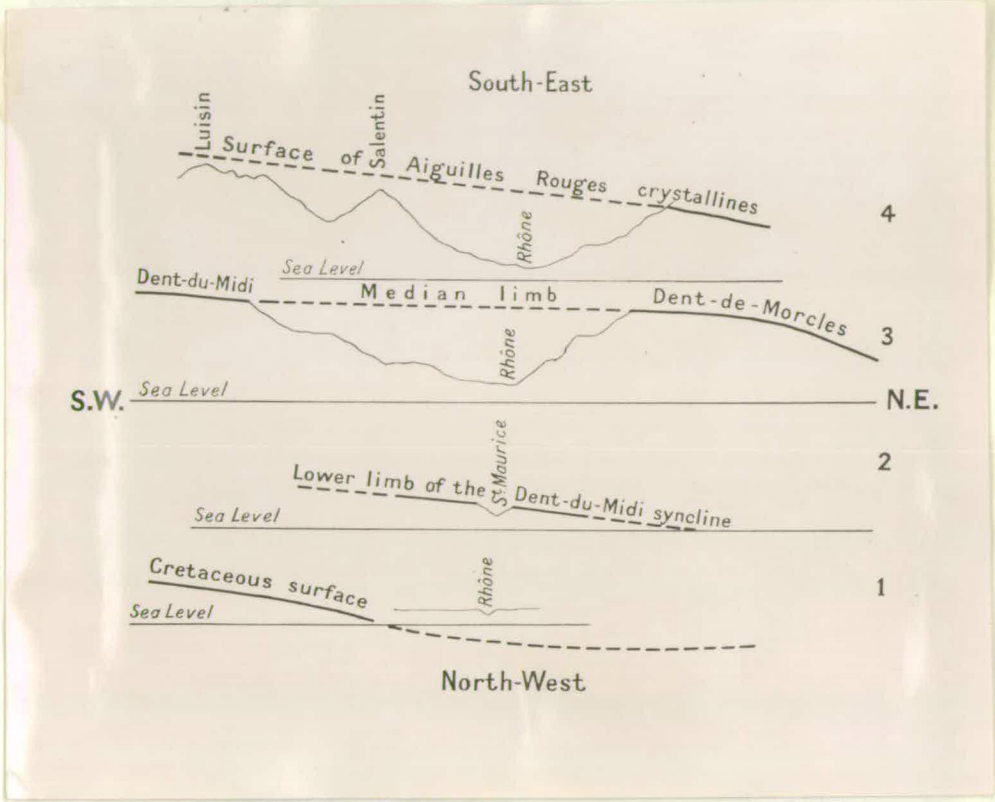 South-East
Luisin
Salentin
Surface of Aiguilles Rouges crystallines
4
Rhône
Sea Level
Dent-du-Midi
Median limb
Dent-de-Morcles
3
Rhône
Sea Level
S.W.
N.E.
2
St Maurice
Lower limb of the Dent-du-Midi syncline
Sea Level
Cretaceous surface
Rhône
1
Sea Level
North-West